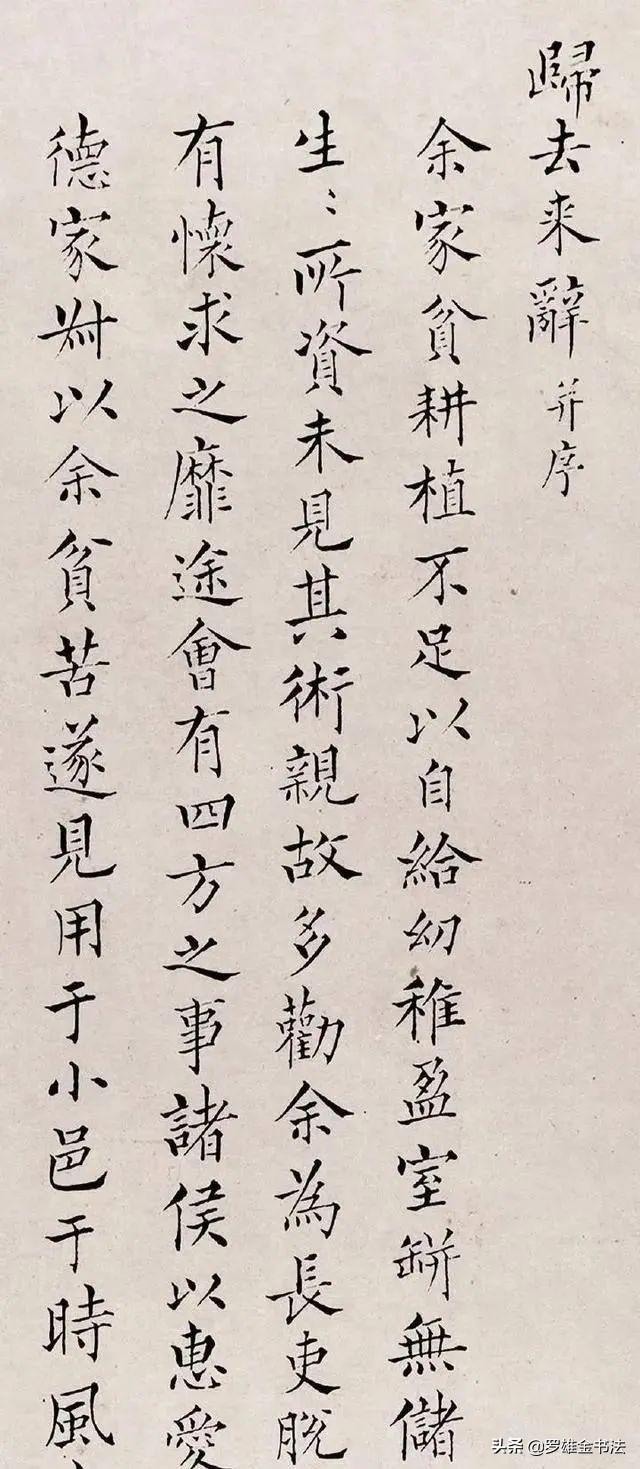 歸去来辭并序
余家貧耕植不足以自給幼稚盈室缾無儲
生〻所資未見其術親故多勸余為長吏脫
有懷求之靡途會有四方之事諸侯以惠愛
德家叔以余貧苦遂見用于小邑于時風
头条 @罗雄金书法